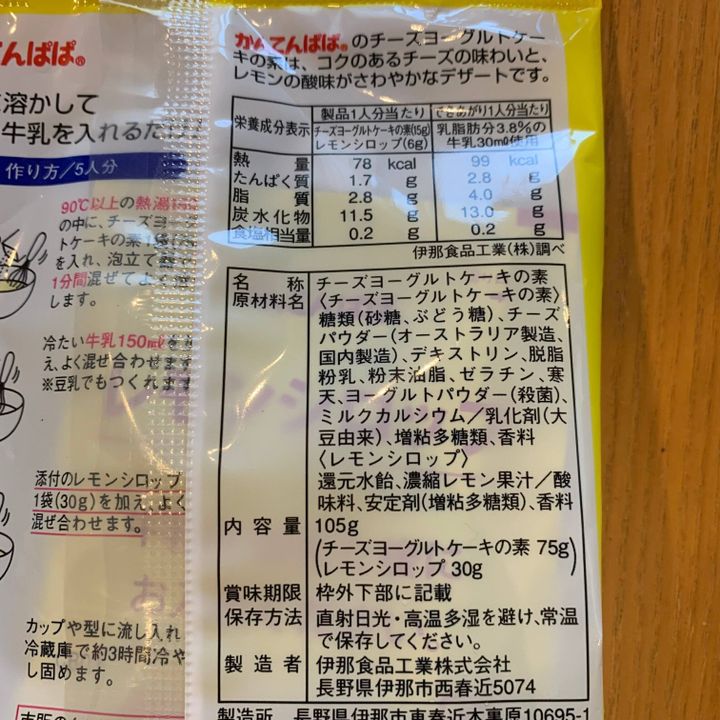 てんぱぱ®
溶かして
牛乳を入れるだけ
作り方/5人分
90℃以上の熱湯150
の中に、チーズヨー
トケーキの素1袋
を入れ、泡立て
1分間混ぜてよく
します。
冷たい牛乳150mlを
え、よく混ぜ合わせます
※豆乳でもつくれます
添付のレモンシロップ
1袋(30g)を加え、よく
混ぜ合わせます。
カップや型に流し入れ
冷蔵庫で約3時間冷や
し固めます。
かんてんぱぱ®のチーズヨーグルトケー
キの素は、コクのあるチーズの味わいと、
レモンの酸味がさわやかなデザートです。
栄養成分表示 製品1人分当たり チーズヨーグルトケーキの素(15g) レモンシロップ(6g) できあがり1人分当たり 乳脂肪分3.8%の 牛乳30ml使用
熱量 78 kcal 99 kcal
たんぱく質 1.7 g 2.8 g
脂質 2.8 g 4.0 g
炭水化物 11.5 g 13.0 g
食塩相当量 0.2 g 0.2 g
伊那食品工業(株)調べ
名称 チーズヨーグルトケーキの素
原材料名 〈チーズヨーグルトケーキの素〉
糖類(砂糖、ぶどう糖)、チーズ
パウダー(オーストラリア製造、
国内製造)、デキストリン、脱脂
粉乳、粉末油脂、ゼラチン、寒
天、ヨーグルトパウダー(殺菌)、
ミルクカルシウム/乳化剤(大
豆由来)、増粘多糖類、香料
〈レモンシロップ〉
還元水飴、濃縮レモン果汁/酸
味料、安定剤(増粘多糖類)、香料
内容量 105g
(チーズヨーグルトケーキの素 75g
レモンシロップ 30g)
賞味期限 枠外下部に記載
保存方法 直射日光・高温多湿を避け、常温
で保存してください。
製造者 伊那食品工業株式会社
長野県伊那市西春近5074
製造所 長野県伊那市東春近木裏原10695-1